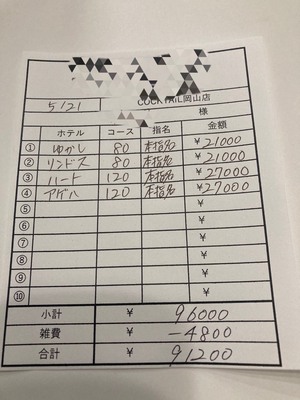 COCKTAIL岡山店
5/21 様
ホテル コース 指名 金額
① ゆかし 80 本指名 ¥21000
② リンドス 80 本指名 ¥21000
③ ハート 120 本指名 ¥27000
④ アゲハ 120 本指名 ¥27000
⑤ ¥
⑥ ¥
⑦ ¥
⑧ ¥
⑨ ¥
⑩ ¥
小計 ¥ 96000
雑費 ¥ -4800
合計 ¥ 91200